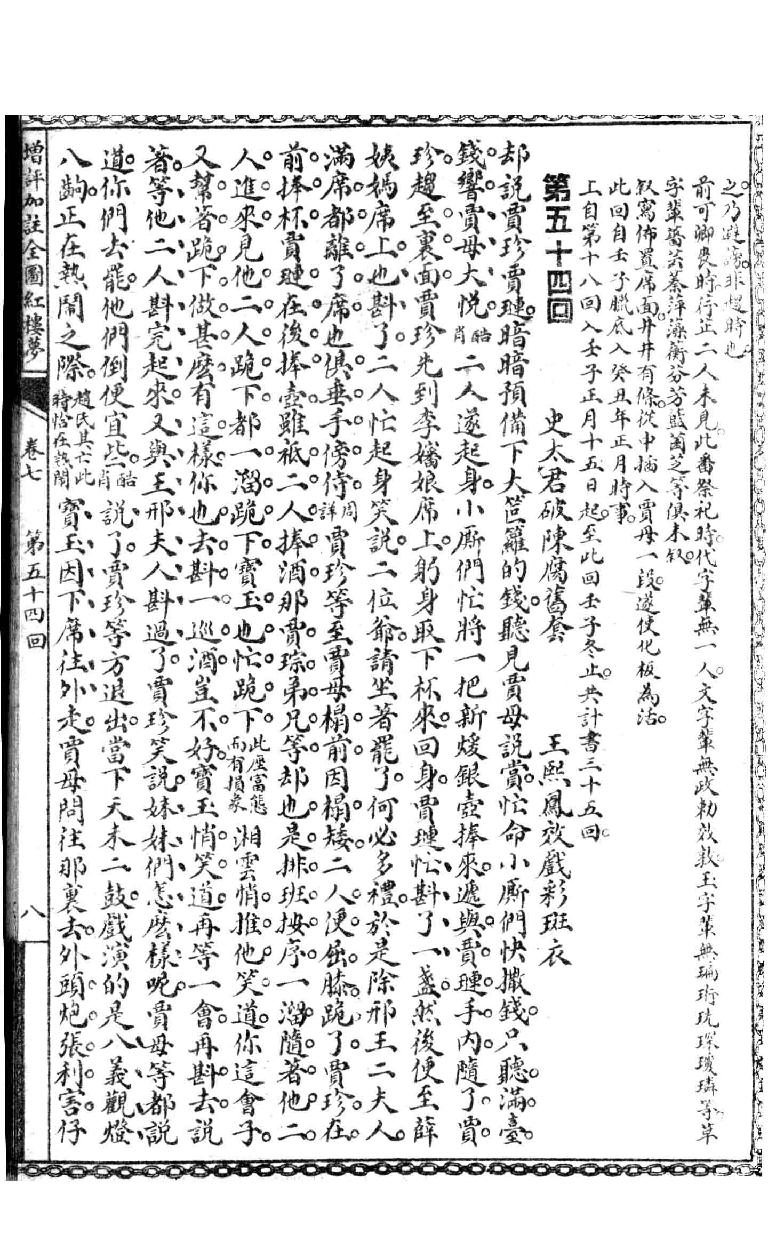 之乃避諱非趨時也
前可卿喪時行正二人未見此番祭祀時代字輩無一人文字輩無政勅效敦玉字輩無㻞珩珖琛瓊璘等草
字輩薔芸蓁萍藻蘅芬芳藍菌芝等俱未叙
叙寫佈置席面井井有條從中插入賈母一段遂使化板為活
此回自壬子臘底入癸丑年正月時事
上自第十八回入壬子正月十五日起至此回壬子冬止共計書三十五回
第五十四回　史太君破陳腐舊套　王熙鳳效戲彩斑衣
却說賈珍賈璉暗暗預備下大笸籮的錢聽見賈母說賞忙命小厮們快撒錢只聽滿臺
錢響賈母大悅酷肖二人遂起身小厮們忙將一把新煖銀壺捧來遞與賈璉手內隨了賈
珍趨至裏面賈珍先到李嬸娘席上躬身取下杯來回身賈璉忙斟了一盞然後便至薛
姨媽席上也斟了二人忙起身笑說二位爺請坐著罷了何必多禮於是除邢王二夫人
滿席都離了席也俱垂手傍侍周詳賈珍等至賈母榻前因榻矮二人便屈膝跪了賈珍在
前捧杯賈璉在後捧壺雖祗二人捧酒那賈琮弟兄等却也是排班按序一溜隨著他二
人進來見他二人跪下都一溜跪下寶玉也忙跪下此座富態而有損象湘雲悄推他笑道你這會子
又幫著跪下做甚麼有這樣你也去斟一巡酒豈不好寶玉悄笑道再等一會再斟去說
著等他二人斟完起來又與王邢夫人斟過了賈珍笑說妹妹們怎麼樣呢賈母等都說
道你們去罷他們倒便宜些酷肖說了賈珍等方退出當下天未二鼓戲演的是八義觀燈
八齣正在熱鬧之際趙氏其亡此時恰在熱鬧寶玉因下席往外走賈母問往那裏去外頭炮張利害仔
增評加註全圖紅樓夢　卷七　第五十四回　八